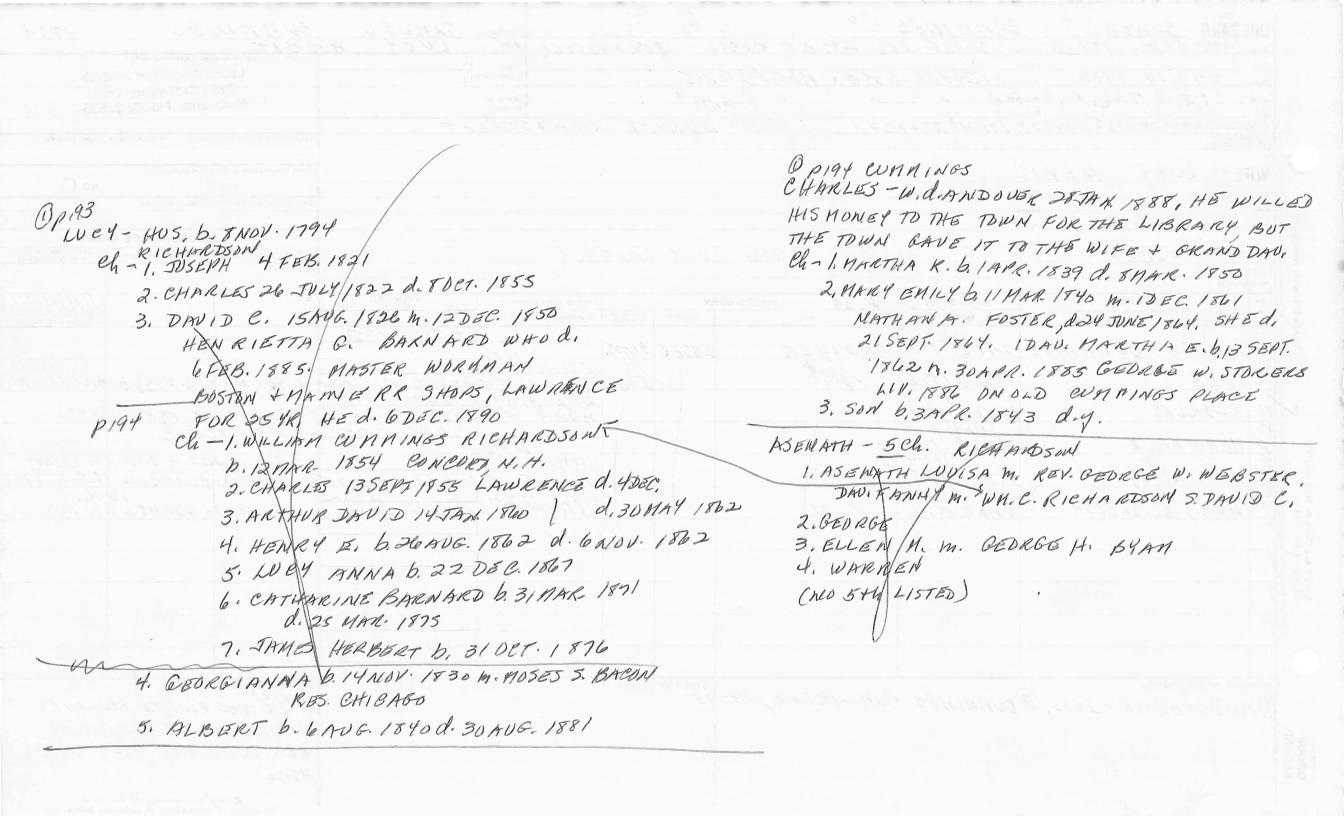 ① p193
LUCY - HUS. b. 8 NOV. 1794
RICHARDSON
Ch - 1. JOSEPH 4 FEB. 1821
2. CHARLES 26 JULY 1822 d. 8 OCT. 1855
3. DAVID C. 15 AUG. 1826 m. 12 DEC. 1850
HENRIETTA G. BARNARD WHO d.
6 FEB. 1885. MASTER WORKMAN
BOSTON + MAINE RR SHOPS, LAWRENCE
p194 FOR 25 YR HE d. 6 DEC. 1890
Ch - 1. WILLIAM CUMMINGS RICHARDSON
b. 12 MAR. 1854 CONCORD, N.H.
2. CHARLES 13 SEPT 1855 LAWRENCE d. 4 DEC.
3. ARTHUR DAVID 14 JAN 1860 | d. 30 MAY 1862
4. HENRY E. b. 26 AUG. 1862 d. 6 NOV. 1862
5. LUCY ANNA b. 22 DEC. 1867
6. CATHARINE BARNARD b. 31 MAR. 1871
d. 25 MAR. 1875
7. JAMES HERBERT b. 31 OCT. 1876
4. GEORGIANNA b. 14 NOV. 1830 m. MOSES S. BACON
RES. CHICAGO
5. ALBERT b. 6 AUG. 1840 d. 30 AUG. 1881
① p194 CUMMINGS
CHARLES - W. d. ANDOVER 28 JAN. 1888, HE WILLED
HIS MONEY TO THE TOWN FOR THE LIBRARY, BUT
THE TOWN GAVE IT TO THE WIFE + GRAND DAU.
Ch - 1. MARTHA K. b. 1 APR. 1839 d. 8 MAR. 1850
2. MARY EMILY b. 11 MAR. 1840 m. 1 DEC. 1861
NATHAN A. FOSTER, d. 24 JUNE 1864. SHE d.
21 SEPT. 1864. 1 DAU. MARTHA E. b. 13 SEPT.
1862 m. 30 APR. 1885 GEORGE W. STOKERS
LIV. 1886 ON OLD CUMMINGS PLACE
3. SON b. 3 APR. 1843 d.y.
ASENATH - 5 Ch. RICHARDSON
1. ASENATH LOUISA m. REV. GEORGE W. WEBSTER.
DAU. FANNY m. WM. C. RICHARDSON S. DAVID C.
2. GEORGE
3. ELLEN M. m. GEORGE H. BYAM
4. WARREN
(NO 5th LISTED)